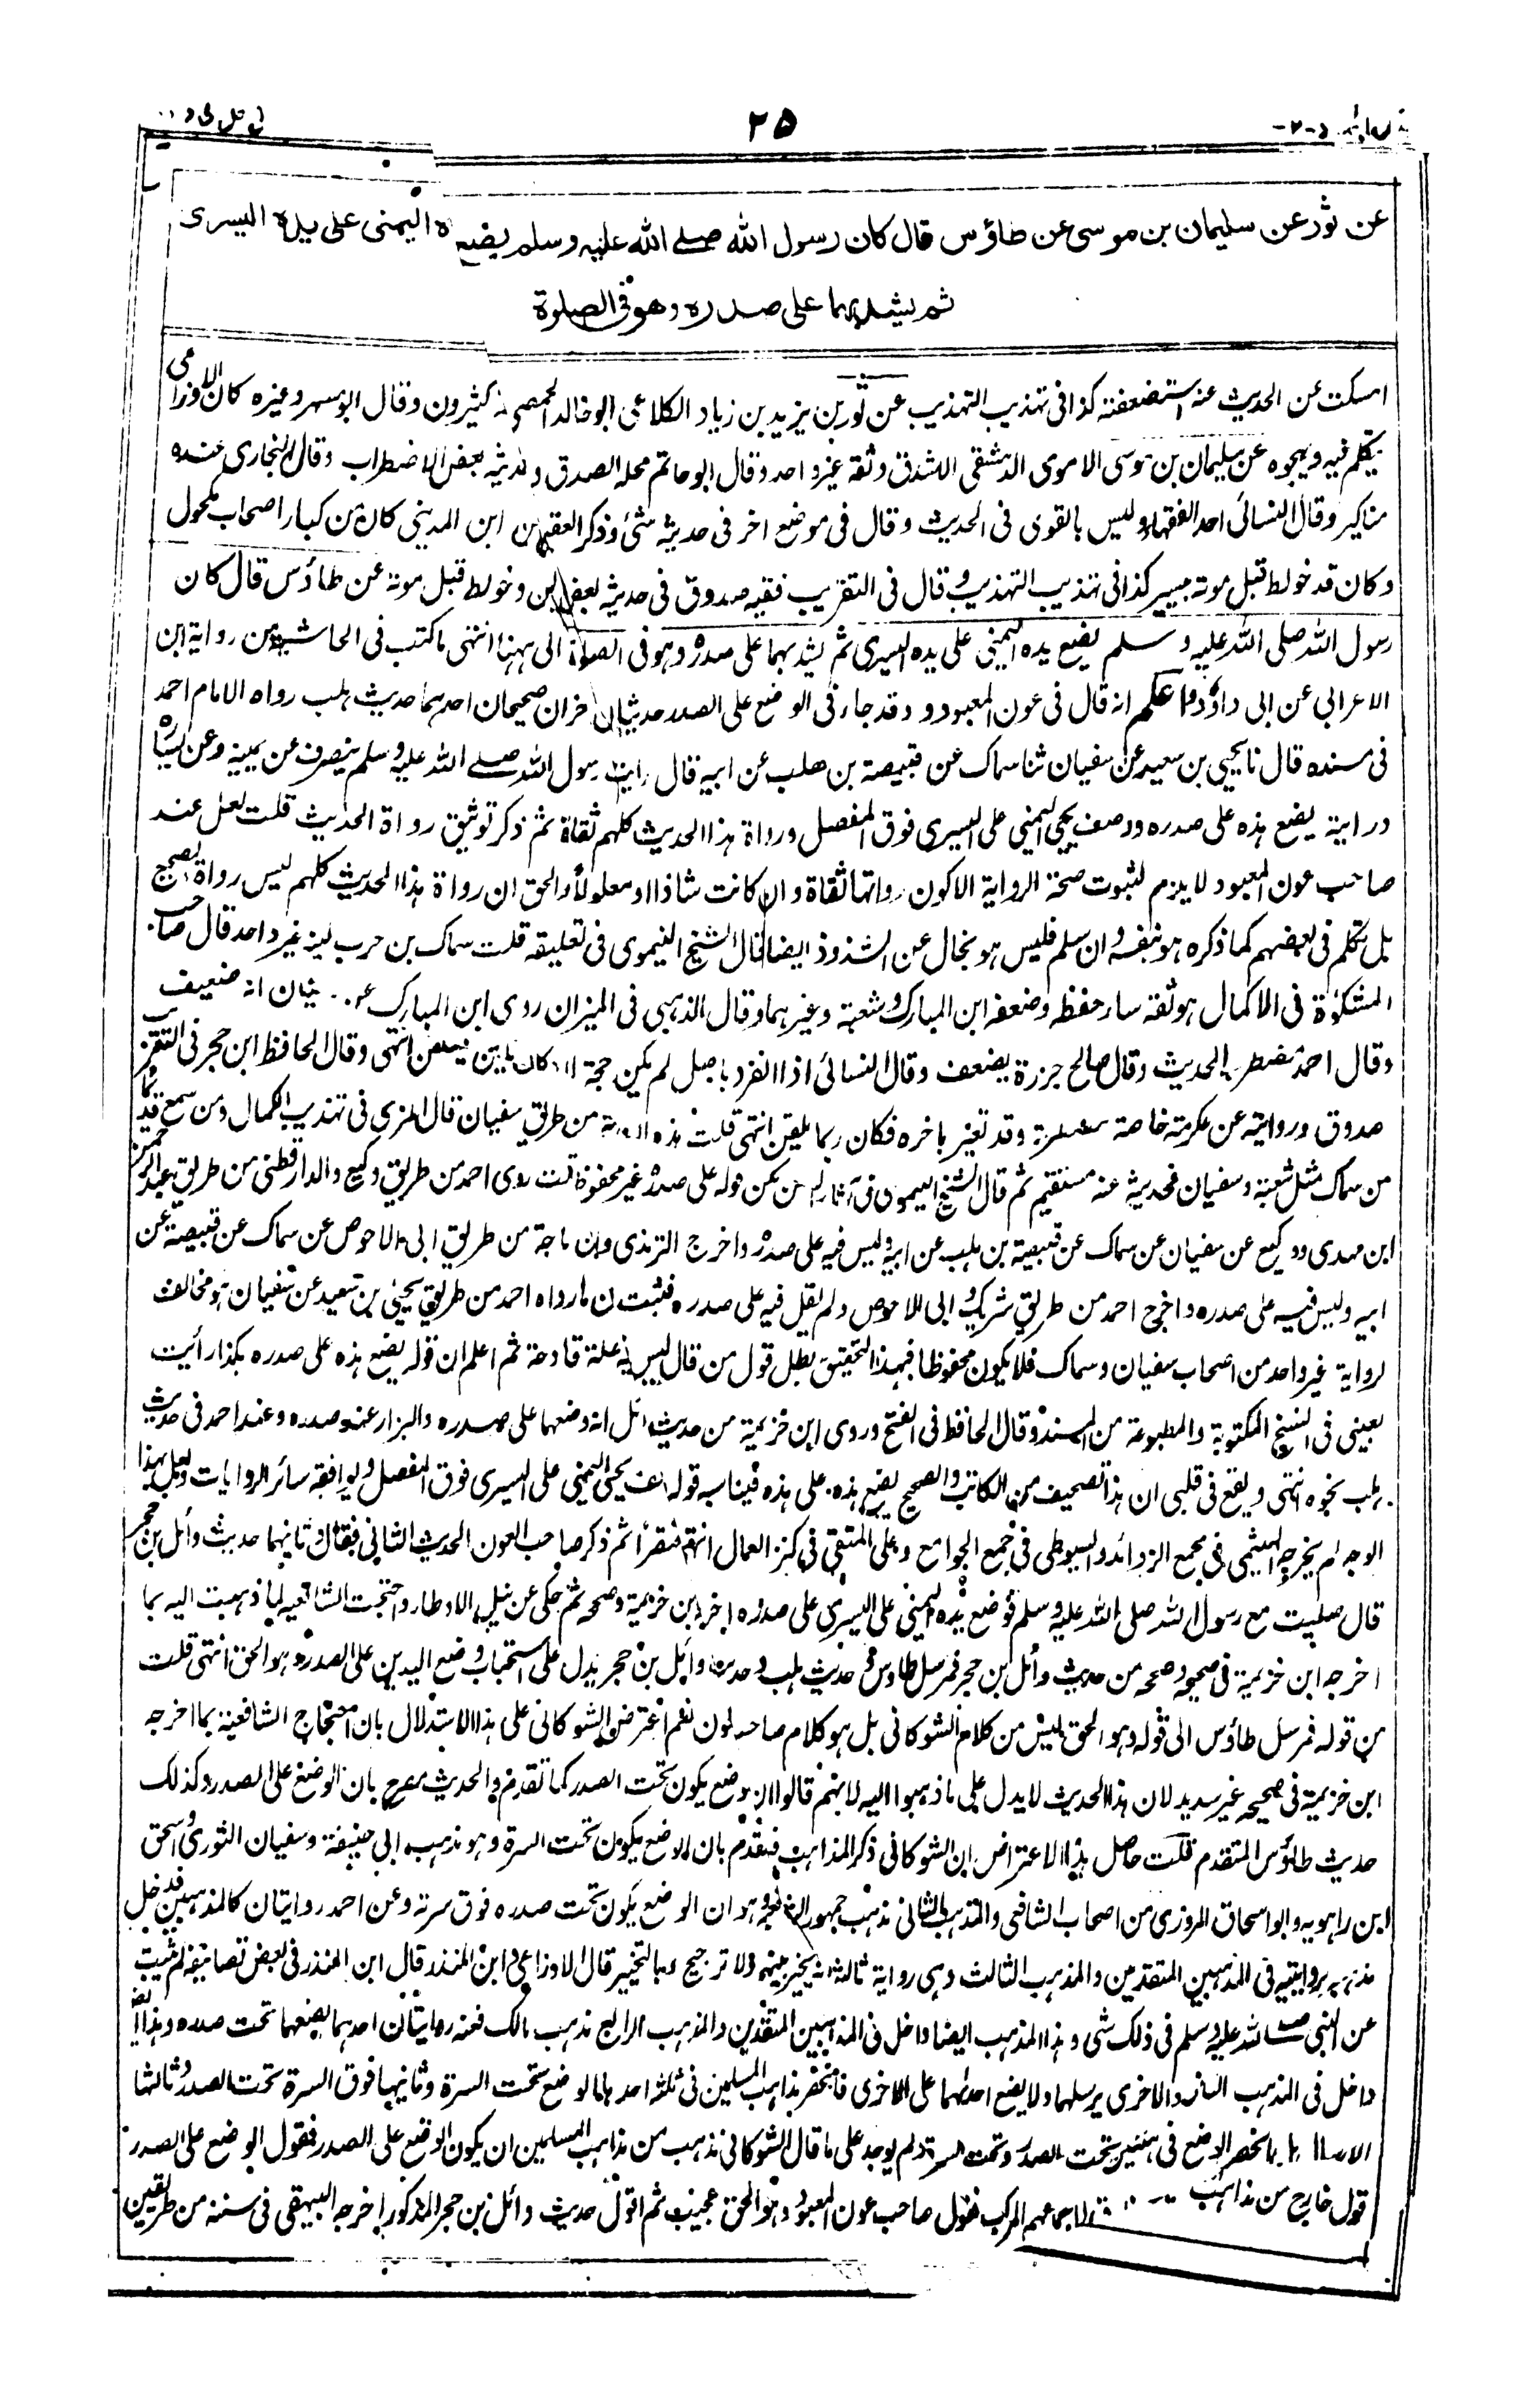 ٢٥
عن ثور عن سليمان بن موسى عن طاؤس قال كان رسول الله صلے الله عليه وسلم يضع يده اليمنى على يده اليسرى
ثم يشد بهما على صدره وهو فى الصلوة
امسكت عن الحديث عنه استضعفته كذا فى تهذيب التهذيب عن ثور بن يزيد بن زياد الكلاعى ابو خالد الحمصى كثيرون وقال ابو مسهر وغيره كان الاوزاعى
يتكلم فيه ويهجوه عن سليمان بن موسى الاموى الدمشقى الاشدق وثقه غير واحد وقال ابو حاتم محله الصدق وفى حديثه بعض الاضطراب وقال البخارى عنده
مناكير وقال النسائى احد الفقهاء وليس بالقوى فى الحديث وقال فى موضع اخر فى حديثه شئ وذكر العقيلى عن ابن المدينى كان من كبار اصحاب مكحول
وكان قد خولط قبل موته بيسير كذا فى تهذيب التهذيب وقال فى التقريب فقيه صدوق فى حديثه بعض لين وخولط قبل موته عن طاؤس قال كان
رسول الله صلى الله عليه وسلم يضع يده اليمنى على يده اليسرى ثم يشد بهما على صدره وهو فى الصلوة الى ههنا انتهى ما كتب فى الحاشية من رواية ابن
الاعرابى عن ابى داؤد واعلم انه قال فى عون المعبود وقد جاء فى الوضع على الصدر حديثان اخران صحيحان احدهما حديث هلب رواه الامام احمد
فى مسنده قال نا يحيى بن سعيد عن سفيان ثنا سماك عن قبيصة بن هلب عن ابيه قال رايت رسول الله صلے الله عليه وسلم ينصرف عن يمينه وعن يساره
ورايته يضع هذه على صدره ووصف يحيى اليمنى على اليسرى فوق المفصل ورواة هذا الحديث كلهم ثقاة ثم ذكر توثيق رواة الحديث قلت لعل عند
صاحب عون المعبود لا يلزم لثبوت صحة الرواية الا كون رواتها ثقاة وان كانت شاذا او معلولا والحق ان رواة هذا الحديث كلهم ليس رواة الصحيح
بل تكلم فى بعضهم كما ذكره هو بنفسه وان سلم فليس هو بخال عن الشذوذ ايضا قال الشيخ النيموى فى تعليقه قلت سماك بن حرب لينه غير واحد قال صاحب
المشكوة فى الاكمال هو ثقة ساء حفظه وضعفه ابن المبارك وشعبة وغيرهما وقال الذهبى فى الميزان روى ابن المبارك عن سفيان انه ضعيف
وقال احمد مضطرب الحديث وقال صالح جزرة يضعف وقال النسائى اذا انفرد باصل لم يكن حجة لانه كان يلقن فيتلقن انتهى وقال الحافظ ابن حجر فى التقريب
صدوق وروايته عن عكرمة خاصة مضطربة وقد تغير باخره فكان ربما يلقن انتهى قلت هذه الرواية من طريق سفيان قال المزى فى تهذيب الكمال ومن سمع قديما
من سماك مثل شعبة وسفيان فحديثه عنه مستقيم ثم قال الشيخ النيموى فى آثار السنن لكن قوله على صدره غير محفوظ قلت روى احمد من طريق وكيع والدارقطنى من طريق عبد الرحمن
ابن مهدى ووكيع عن سفيان عن سماك عن قبيصة بن هلب عن ابيه وليس فيه على صدره واخرج الترمذى وابن ماجة من طريق ابى الاحوص عن سماك عن قبيصة عن
ابيه وليس فيه على صدره واخرج احمد من طريق شريك وابى الاحوص ولم يقل فيه على صدره فثبت ان ما رواه احمد من طريق يحيى بن سعيد عن سفيان هو مخالف
لرواية غير واحد من اصحاب سفيان وسماك فلا يكون محفوظا فبهذا التحقيق بطل قول من قال ليس فيه علة قادحة ثم اعلم ان قوله يضع هذه على صدره هكذا رأيت
بعينى فى النسخ المكتوبة والمطبوعة من المسند وقال الحافظ فى الفتح وروى ابن خزيمة من حديث وائل انه وضعهما على صدره والبزار عند صدره وعند احمد فى حديث
هلب نحوه انتهى ويقع فى قلبى ان هذا تصحيف من الكاتب والصحيح يضع هذه على هذه فيناسبه قوله وصف يحيى اليمنى على اليسرى فوق المفصل ويوافقه سائر الروايات ولعل لهذا
الوجه لم يخرجه الهيثمى فى مجمع الزوائد والسيوطى فى جمع الجوامع وعلى المتقى فى كنز العمال انتهى مختصرا ثم ذكر صاحب العون الحديث الثانى فقال وثانيهما حديث وائل بن حجر
قال صليت مع رسول الله صلى الله عليه وسلم فوضع يده اليمنى على اليسرى على صدره اخرجه ابن خزيمة وصححه ثم حكى عن نيل الاوطار واحتجت الشافعية لما ذهبت اليه بما
اخرجه ابن خزيمة فى صحيحه وصححه من حديث وائل بن حجر فمرسل طاوس وحديث هلب وحديث وائل بن حجر يدل على استحباب وضع اليدين على الصدر وهو الحق انتهى قلت
من قوله فمرسل طاؤس الى قوله وهو الحق ليس من كلام الشوكانى بل هو كلام صاحب العون نعم اعترض الشوكانى على هذا الاستدلال بان احتجاج الشافعية بما اخرجه
ابن خزيمة فى صحيحه غير سديد لان هذا الحديث لا يدل على ما ذهبوا اليه لانهم قالوا ان الوضع يكون تحت الصدر كما تقدم والحديث مصرح بان الوضع على الصدر وكذلك
حديث طاؤس المتقدم قلت حاصل هذا الاعتراض ان الشوكانى ذكر المذاهب فتقدم بان الوضع يكون تحت السرة وهو مذهب ابى حنيفة وسفيان الثورى واسحق
ابن راهويه وابو اسحاق المروزى من اصحاب الشافعى والمذهب الثانى مذهب جمهور الشافعية وهو ان الوضع يكون تحت صدره فوق سرته وعن احمد روايتان كالمذهبين فدخل
مذهبه بروايتيه فى المذهبين المتقدمين والمذهب الثالث وهى رواية ثالثة انه يخير بينهما ولا ترجيح وبالتخيير قال الاوزاعى وابن المنذر قال ابن المنذر فى بعض تصانيفه لم يثبت
عن النبى صلى الله عليه وسلم فى ذلك شئ وهذا المذهب ايضا داخل فى المذهبين المتقدمين والمذهب الرابع مذهب مالك فعنه روايتان احدهما يضعهما تحت صدره وهذا ايضا
داخل فى المذهب الثانى والاخرى يرسلهما ولا يضع احدهما على الاخرى فانحصر مذاهب المسلمين فى ثلثة احدها الوضع تحت السرة وثانيها فوق السرة تحت الصدر وثالثها
الارسال فانحصر الوضع فى هيئتين تحت الصدر وتحت السرة ولم يوجد على ما قال الشوكانى مذهب من مذاهب المسلمين ان يكون الوضع على الصدر فقول الوضع على الصدر
قول خارج من مذاهب اجماعهم المركب فقول صاحب عون المعبود وهو الحق عجيب ثم اقول حديث وائل بن حجر المذكور اخرجه البيهقى فى سننه من طريقين